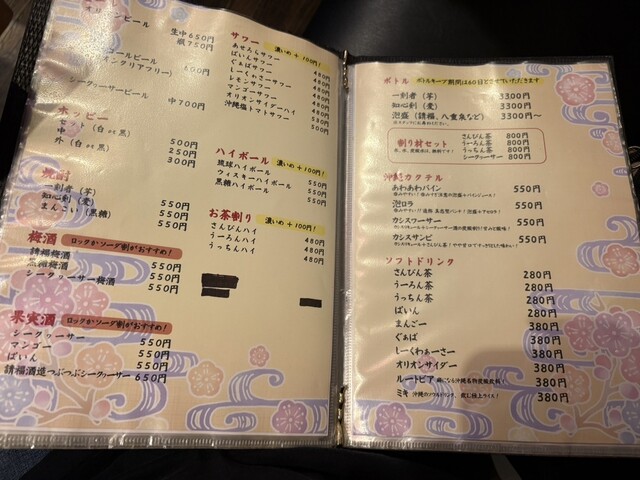 生中650円
瓶750円
600円
シークヮーサービール
中700円
ホッピー
セット(白or黒) 500円
中 250円
外(白or黒) 300円
焼酎
一刻者(芋) 550円
知心剣(麦) 550円
まんさい(黒糖) 550円
梅酒 ロックかソーダ割がおすすめ!
請福梅酒 550円
黒糖梅酒 550円
シークヮーサー梅酒 550円
果実酒 ロックかソーダ割がおすすめ!
シークヮーサー 550円
マンゴー 550円
ぱいん 550円
請福酒造つぶつぶシークヮーサー 650円
サワー 濃いめ+100円!
あせろらサワー 480円
ぱいんサワー 480円
ぐぁばサワー 480円
しーくわさーサワー 480円
レモンサワー 480円
マンゴーサワー 480円
オリオンサイダーハイ 530円
沖縄塩トマトサワー 500円
ハイボール 濃いめ+100円!
琉球ハイボール 550円
ウィスキーハイボール 550円
黒糖ハイボール 550円
お茶割り 濃いめ+100円!
さんぴんハイ 480円
うーろんハイ 480円
うっちんハイ 480円
ボトル ボトルキープ期間は60日とさせていただきます
一刻者(芋) 3300円
知心剣(麦) 3300円
泡盛(請福、八重泉など) 3300円
割り材セット
さんぴん茶 800円
うーろん茶 800円
うっちん茶 800円
シークヮーサー 800円
沖縄カクテル
あわあわパイン 550円
泡ロラ 550円
カシスワーサー 550円
カシスサンピ 550円
ソフトドリンク
さんぴん茶 280円
うーろん茶 280円
うっちん茶 280円
ぱいん 280円
まんごー 380円
ぐぁば 380円
しーくわぁーさー 380円
オリオンサイダー 380円
ルートビア 癖になる沖縄名物炭酸飲料! 380円
ミキ 380円